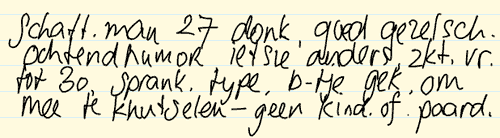 Schaft. man 27 donk, goed gezelsch.
ochtendhumor ietsie anders, zkt. vr.
tot 30, sprank. type, b-tje gek, om
mee te knutselen – geen kind. of paard.